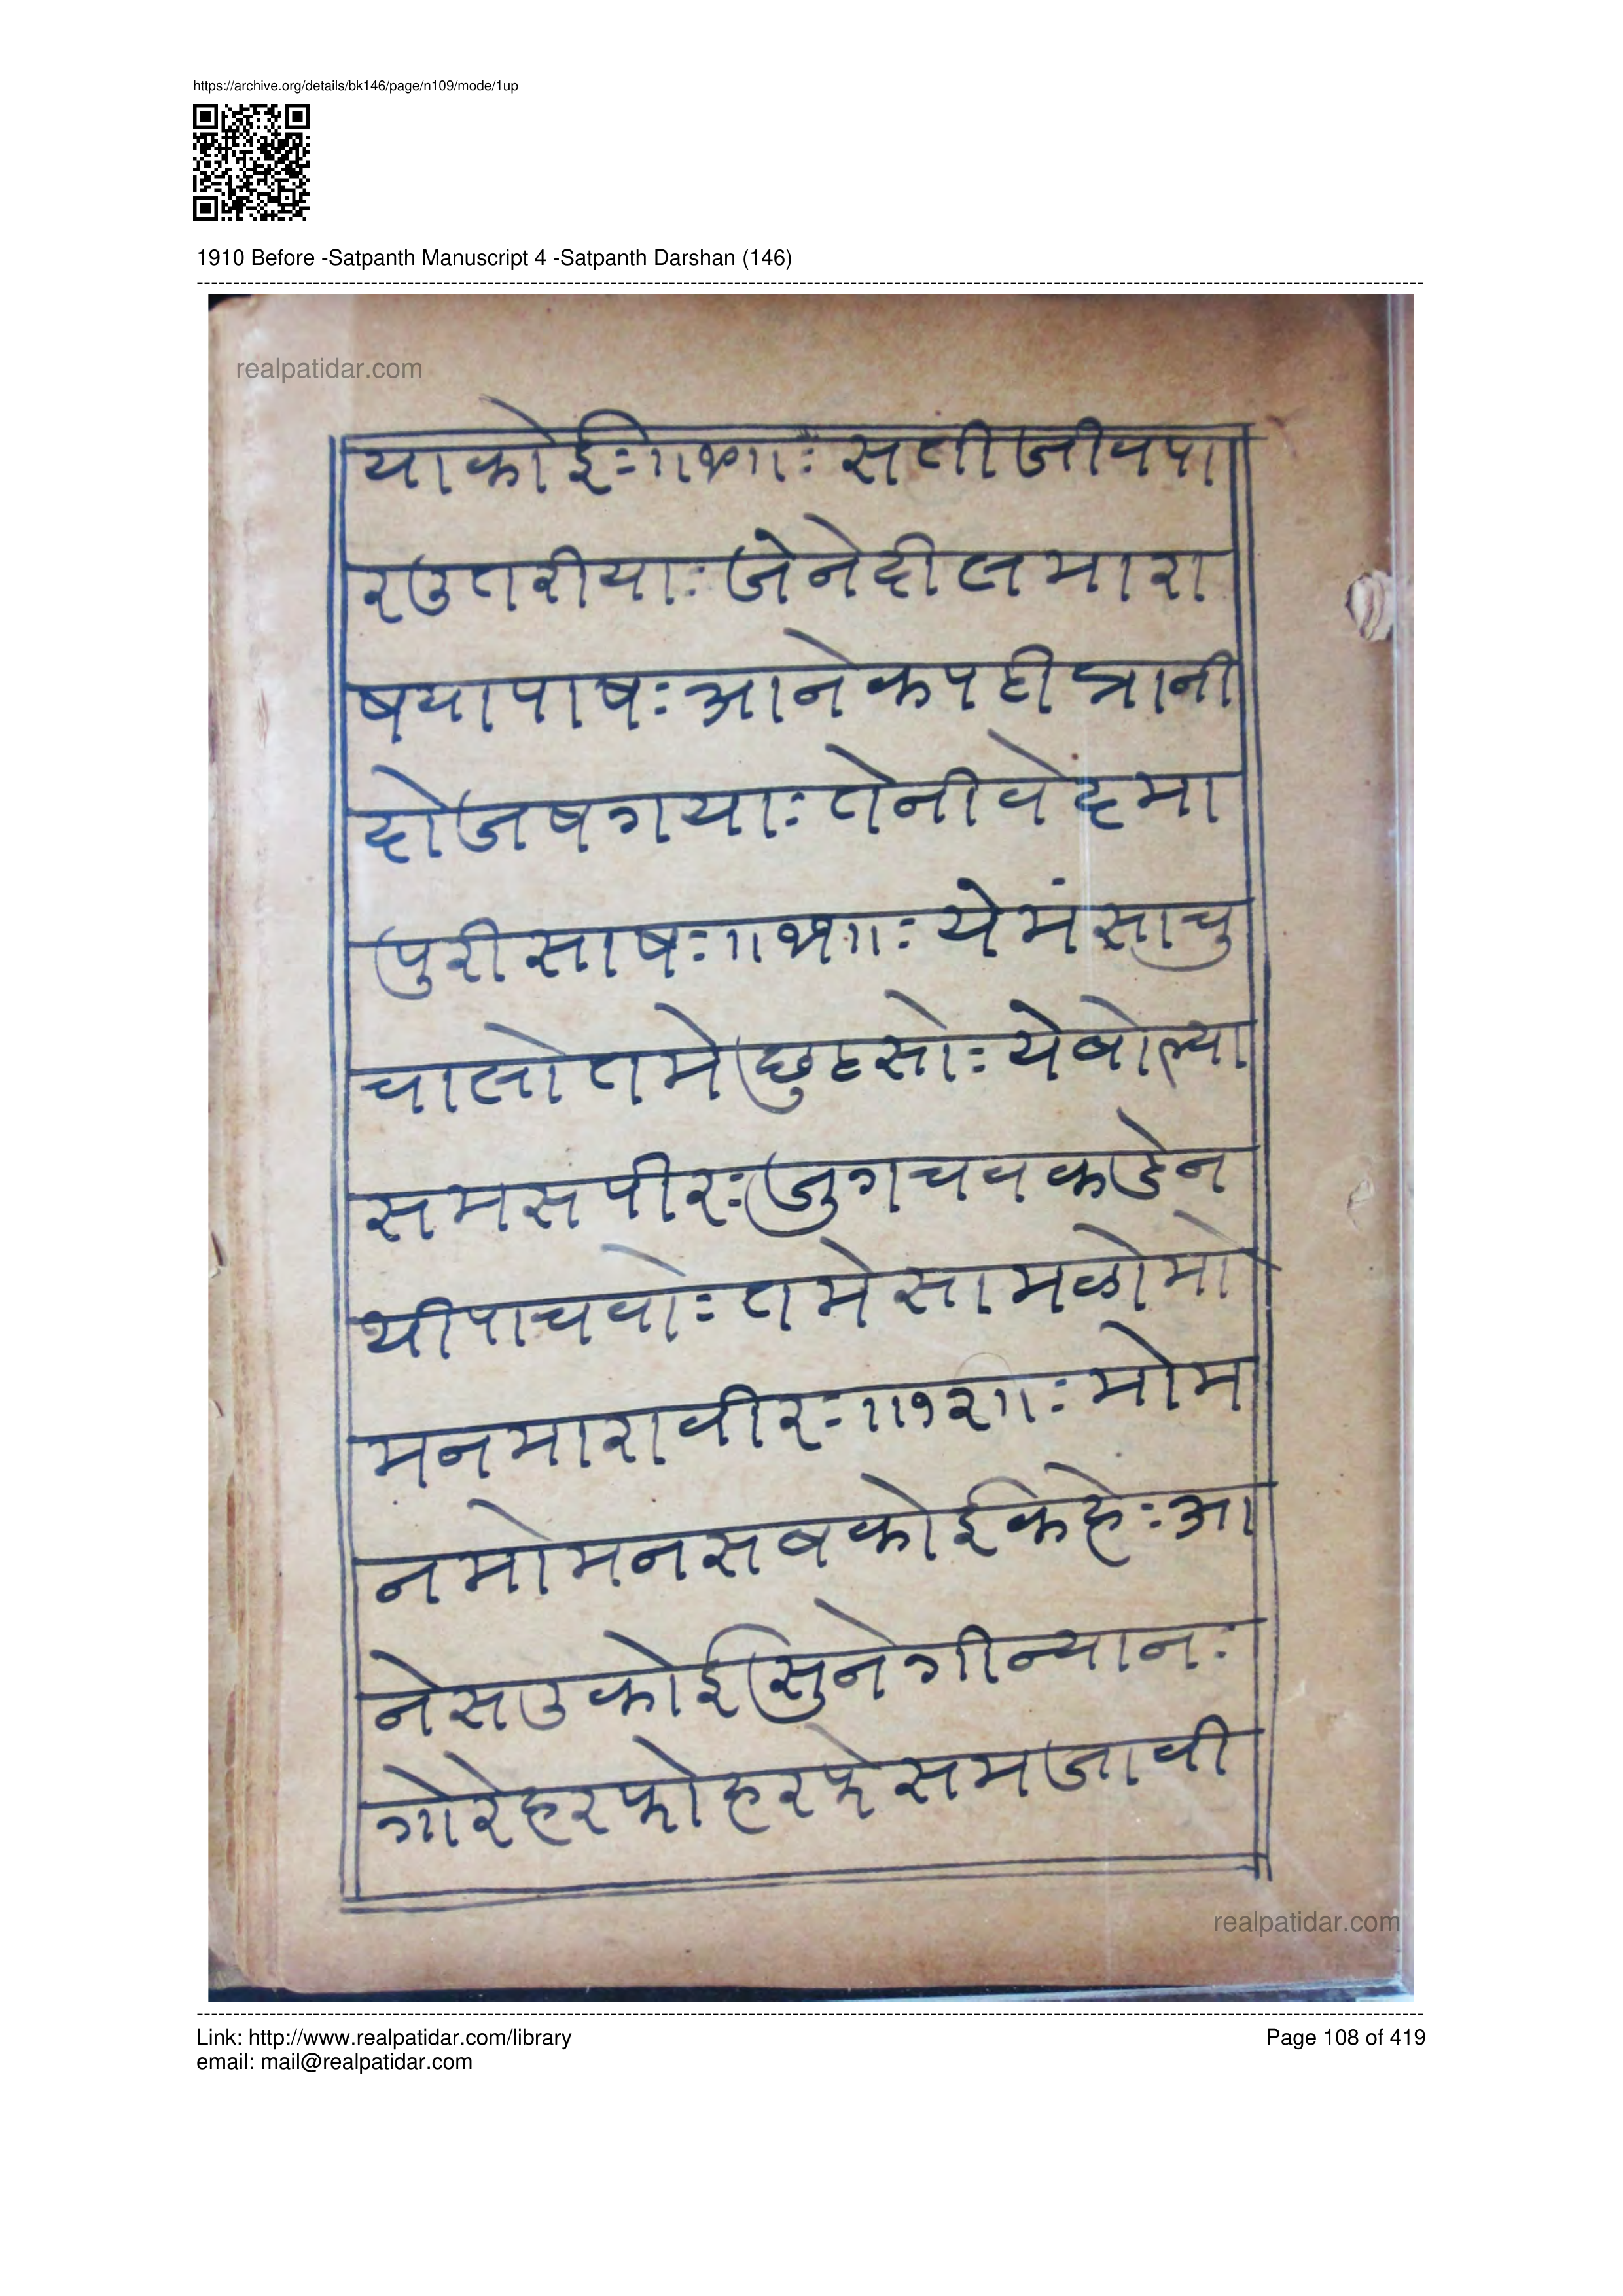 https://archive.org/details/bk146/page/n109/mode/1up
1910 Before -Satpanth Manuscript 4 -Satpanth Darshan (146)
realpatidar.com
याकोईः॥१०॥ः सतीजीवपा
रउतरीयाः जेनेदीलमारा
षयापाषः आनेकपहीत्रानी
दोजषगयाः तेनीवेहमा
पुरीसाषः॥११॥ः येमंसाचु
चालोतमेछुटसोः येबोल्या
समसपीरः जुगचवकडेन
थीपाचवोः तमेसामळोमो
मनमारावीरः॥१२॥ः मोम
नमोमनसबकोईकहेः आ
नेसउकोईसुनेगीन्यानः
गोरेहरफोहरफेसमजावी
realpatidar.com
Link: http://www.realpatidar.com/library
Page 108 of 419
email: mail@realpatidar.com